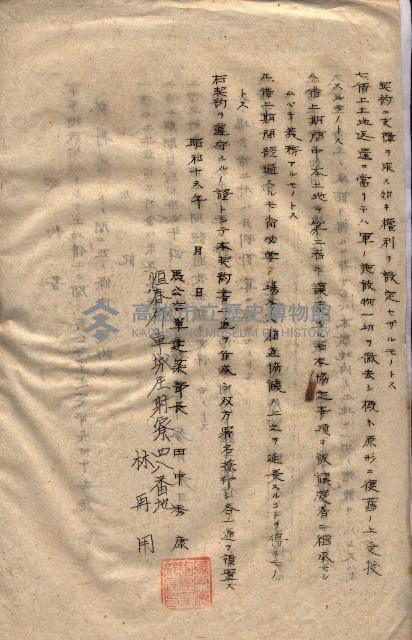 契約ニ支障ヲ来ス如キ權利ヲ設定セザルモノトス
七、借上土地返還ニ當リテハ軍ノ施設物一切ヲ撤去シ概ネ原形ニ復舊ノ上受授
スルモノトス
八、借上期間中本土地ヲ第三者ニ讓渡
本協定事項ヲ被讓渡者ニ繼承セシ
ムベキ義務アルモノトス
九、借上期間經過
尚必要ノ場合
相互協議ノ上之ヲ延長スルコトヲ得ルモノ
トス
右契約ヲ遵守スル
證トシテ本契約書
ヲ作成シ双方署名捺印シ各一通ヲ領置ス
昭和十五年 月 日
馬公海軍建築部長
田中秀康
恒春郡車城庄射寮四八番地
林再用
高雄市立歷史博物館
KAOHSIUNG MUSEUM OF HISTORY